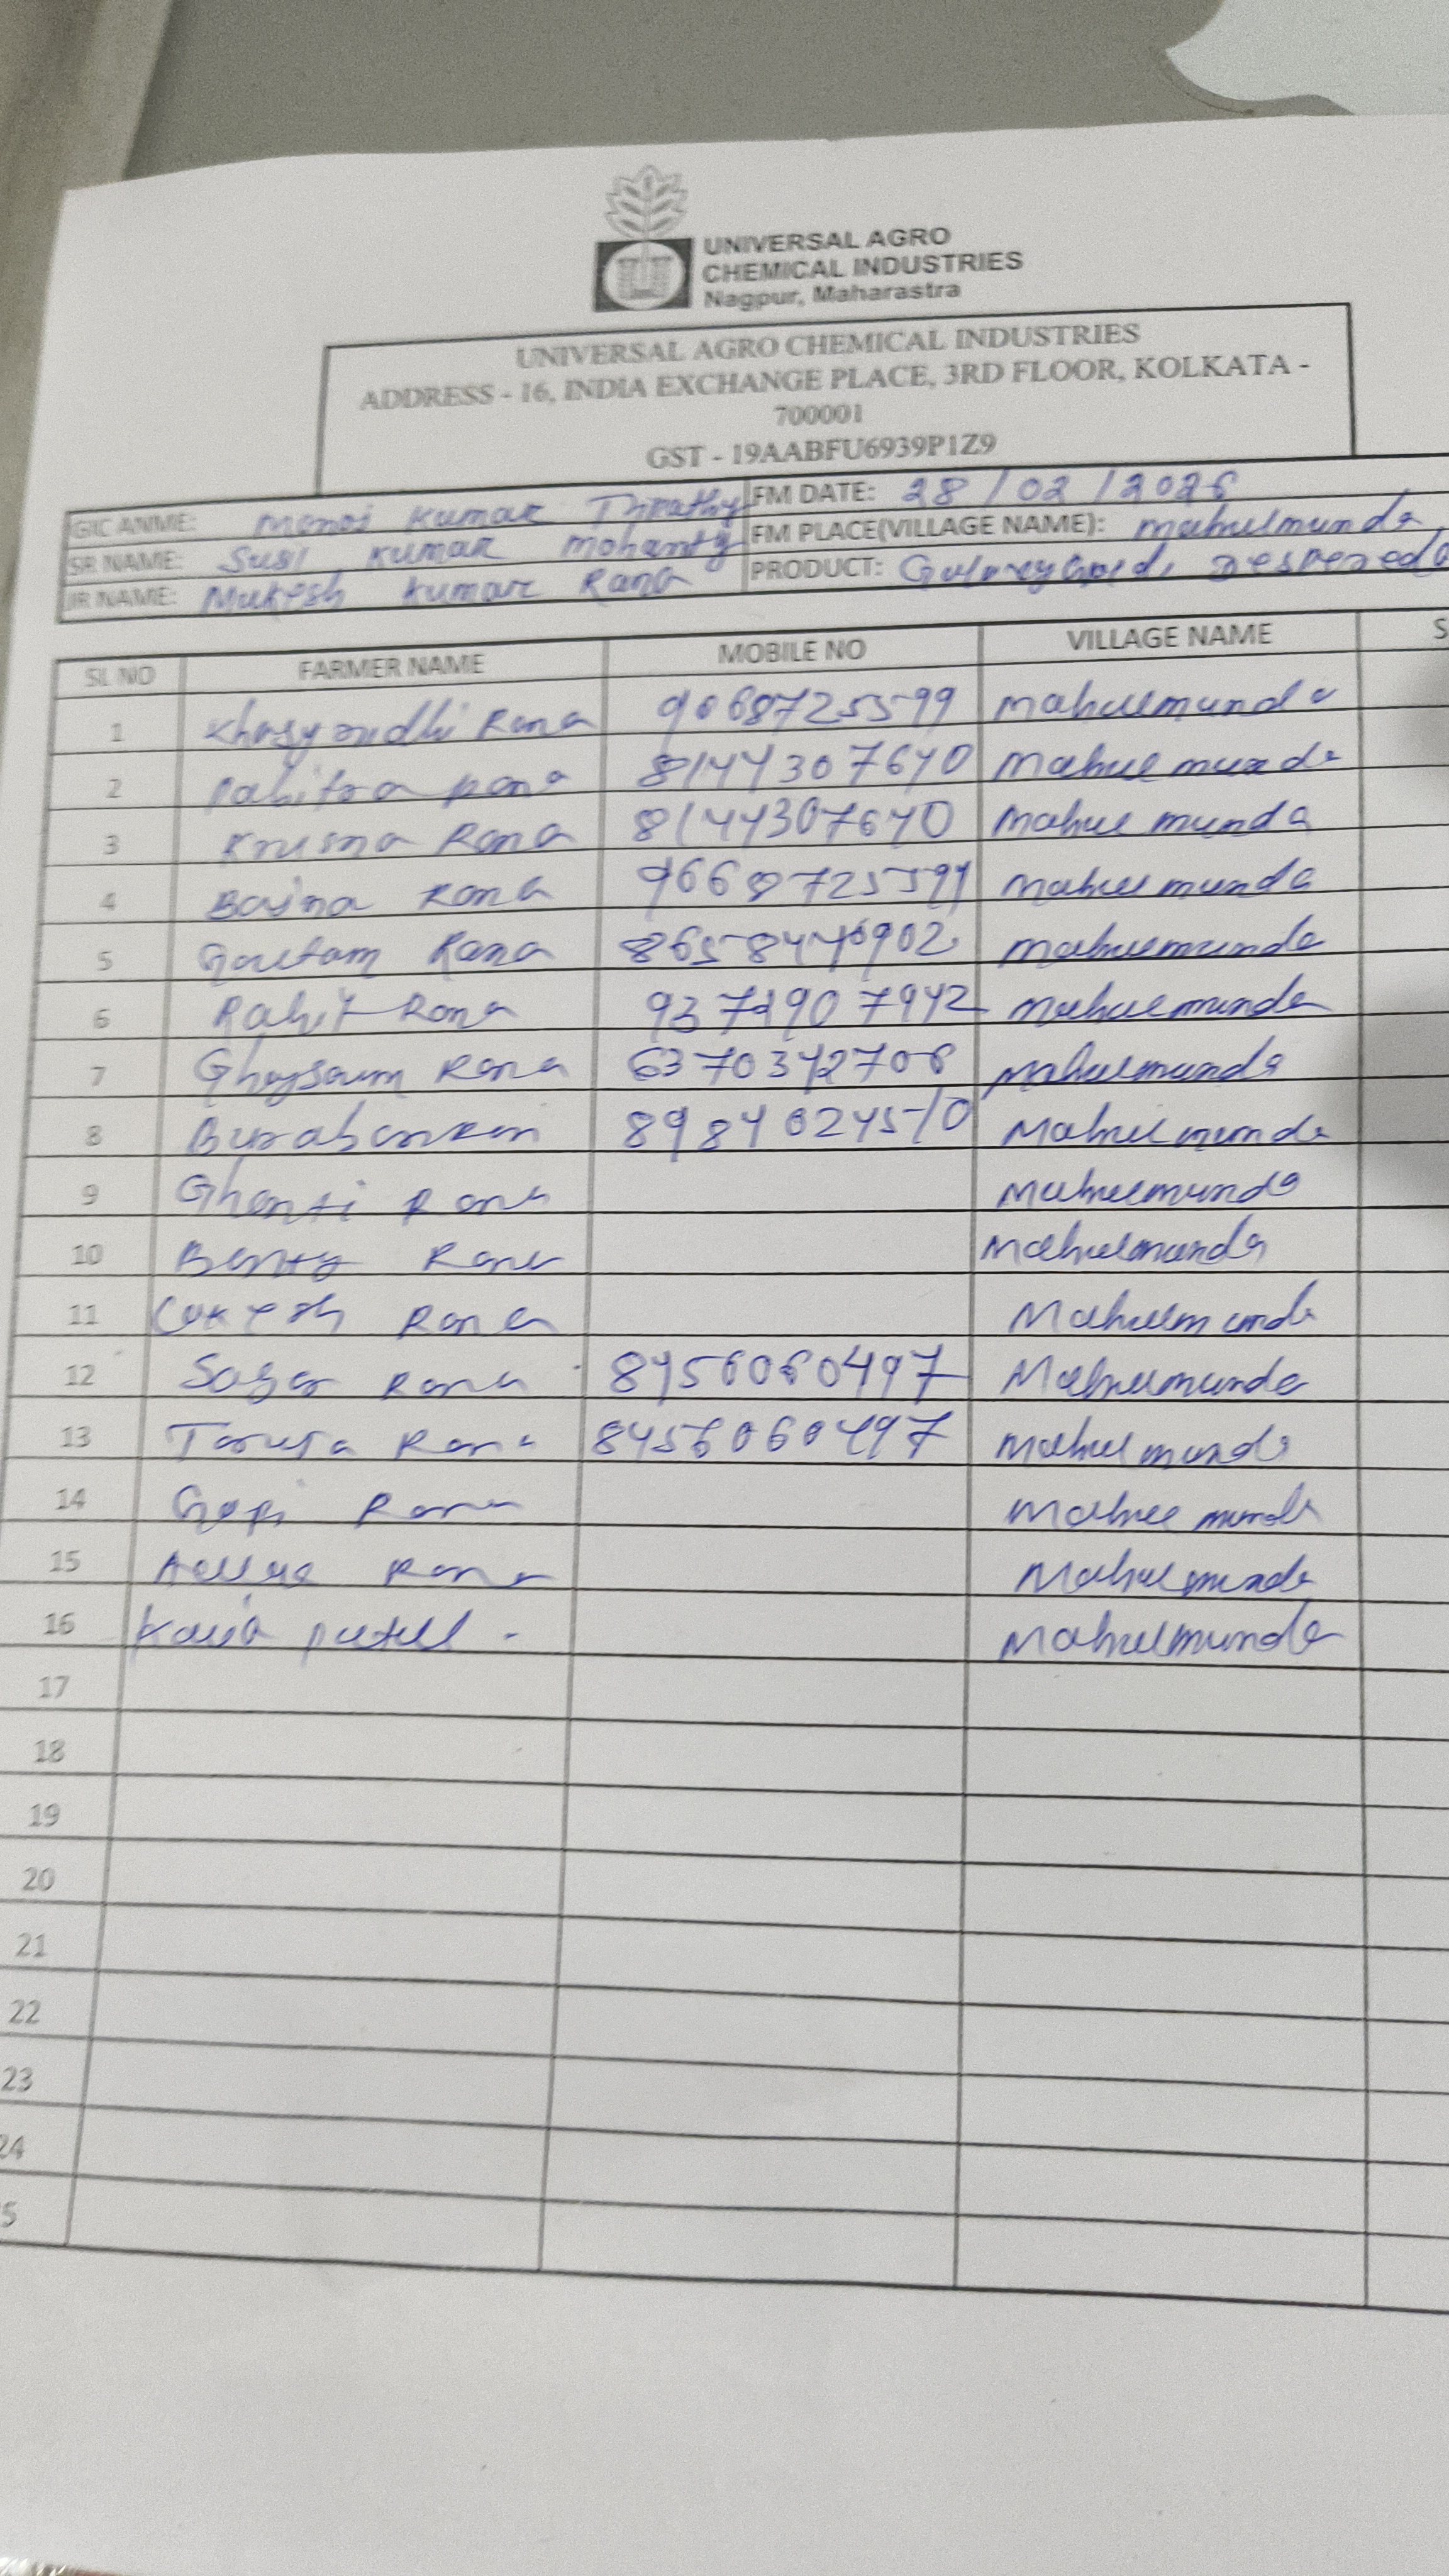 UNIVERSAL AGRO
CHEMICAL INDUSTRIES
Nagpur, Maharastra
UNIVERSAL AGRO CHEMICAL INDUSTRIES
ADDRESS - 16, INDIA EXCHANGE PLACE, 3RD FLOOR, KOLKATA -
700001
GST - 19AABFU6939P1Z9
GIC ANME: Manoj Kumar Tripathy FM DATE: 28/02/2026
SR NAME: Susil Kumar Mohanty FM PLACE(VILLAGE NAME): Mahulmunda
JR NAME: Mukesh Kumar Rana PRODUCT:
SL NO FARMER NAME MOBILE NO VILLAGE NAME S
1 Rana Mahulmunda
2 Pabitra Rana 8144307640 Mahulmunda
3 Krusna Rana 8144307640 Mahulmunda
4 Rana Mahulmunda
5 Goutam Rana Mahulmunda
6 Rohit Rana Mahulmunda
7 Rana 6370342708 Mahulmunda
8 Mahulmunda
9 Rana Mahulmunda
10 Rana Mahulmunda
11 Rana Mahulmunda
12 Rana 8456060497 Mahulmunda
13 Rana 8456060497 Mahulmunda
14 Gopi Rana Mahulmunda
15 Rana Mahulmunda
16 Mahulmunda
17
18
19
20
21
22
23
24
5